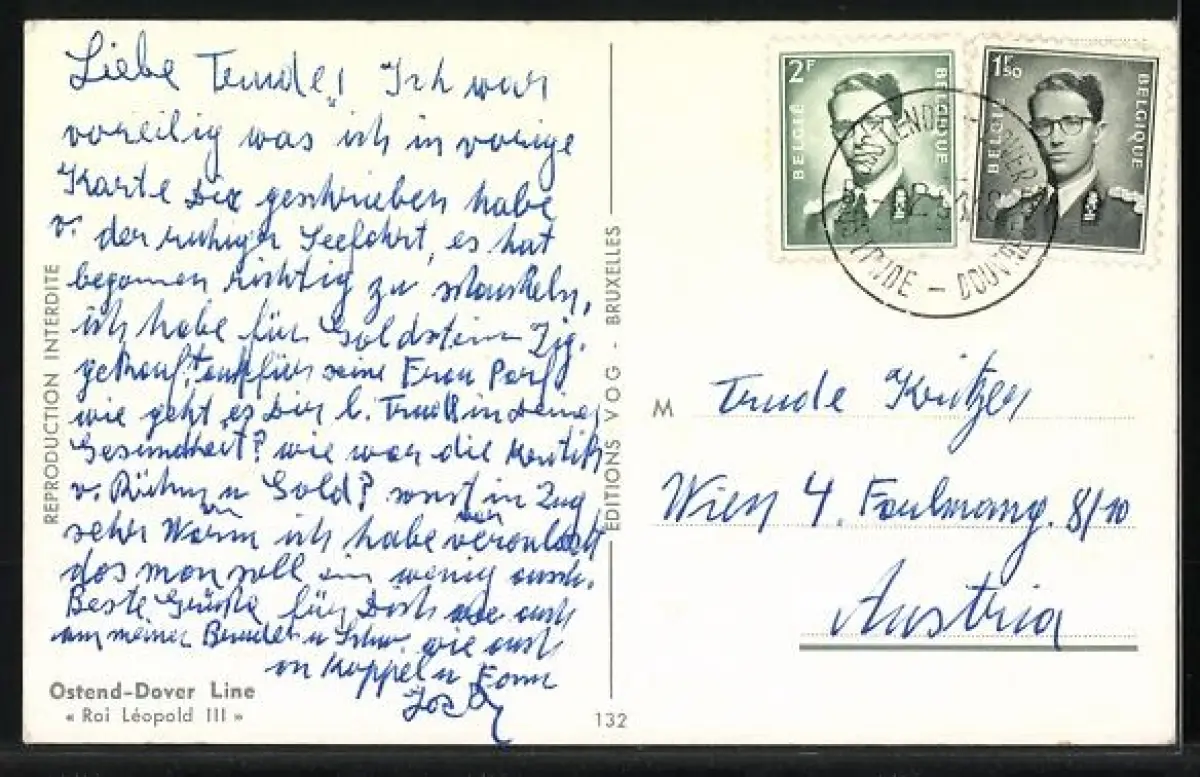 Liebe Trude! Ich war
voreilig was ich in vorige
Karte Dir geschrieben habe
v. der ruhigen Seefahrt, es hat
begonnen richtig zu schaukeln,
ich habe für Goldstein Zig.
gekauft, auch für seine Frau Parf.
wie geht es Dir l. Trude in Deiner
Gesundheit? wie war die Kritik
v. u Gold? sonst in Zug
sehr Warm ich habe veranlasst
das man soll ein wenig
Beste Grüße für Dich wie auch
an meinen Bruder u Schw. wie auch
an Koppel u
REPRODUCTION INTERDITE
Ostend-Dover Line
« Roi Léopold III »
EDITIONS VOG - BRUXELLES
132
2F
BELGIË
BELGIQUE
1F50
BELGIË
BELGIQUE
OOSTENDE - DOVER
OSTENDE - DOUVRES
M Trude
Wien 4. 8/10
Austria